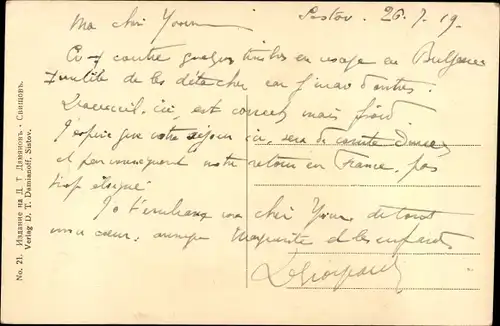 Sistov. 26.7.19.
Ma chère Yvonne
Ci contre quelques timbres en usage en Bulgarie
Inutile de les détacher car j'en ai d'autres.
L'accueil, ici, est correct mais froid
J'espère que votre séjour ici, sera de courte durée
et par conséquent notre retour en France, pas
trop éloigné
Je t'embrasse ma chère Yvonne de tout
mon cœur; ainsi que Marguerite et les enfants
No. 21. Издание на Д. Т. Дамяновъ. - Свищовъ.
Verlag D. T. Damianoff, Sistov.